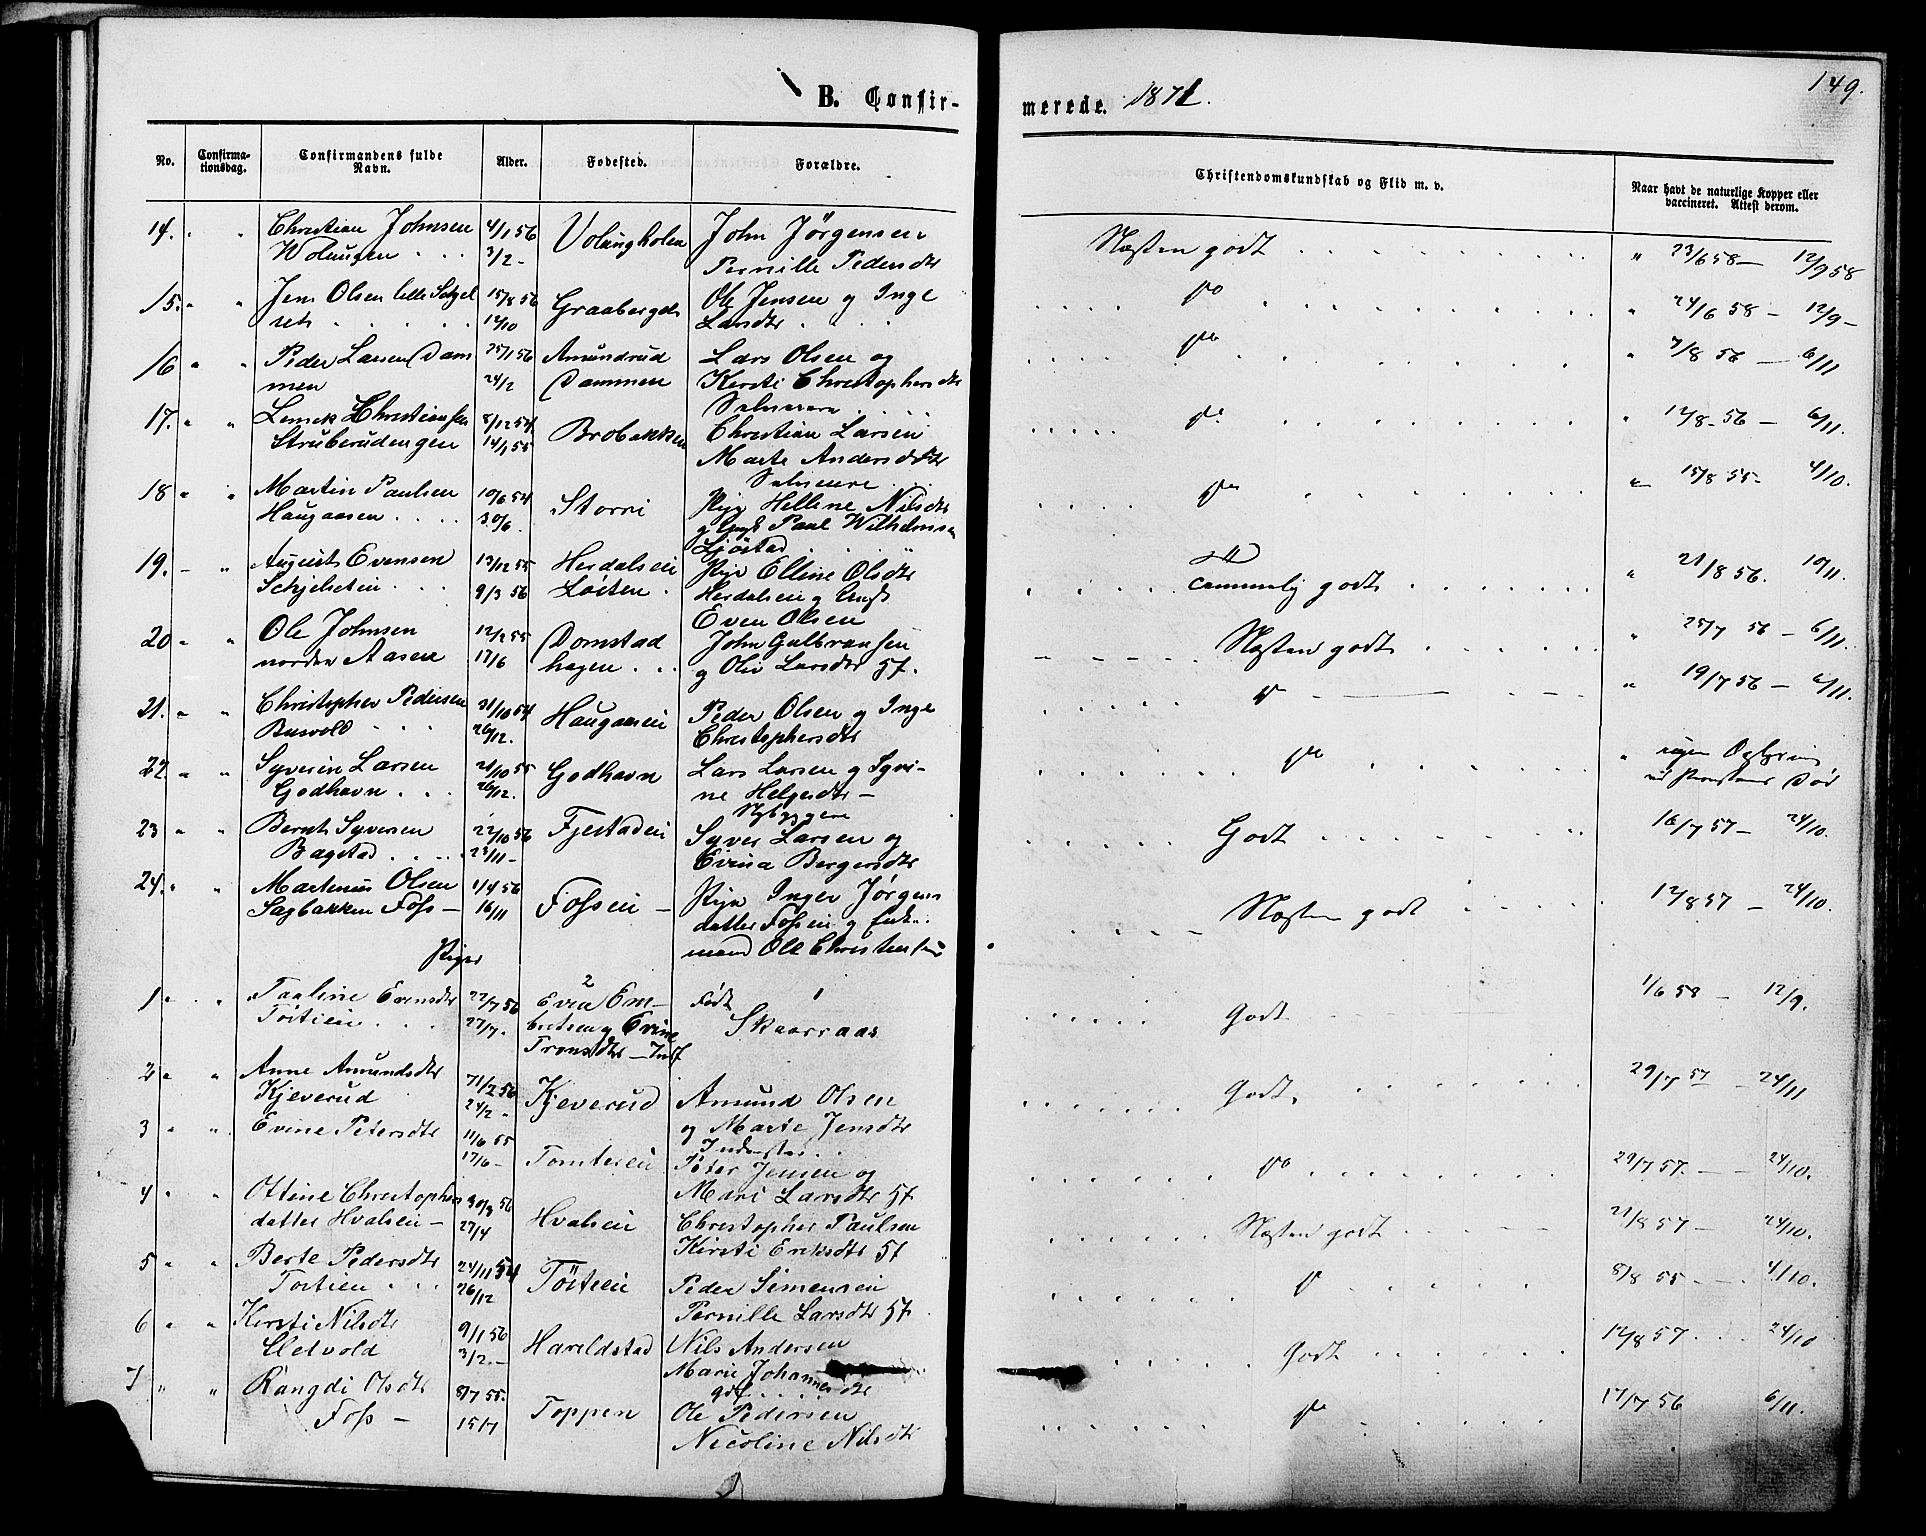 149.
B. Confirmerede. 1871.
No. Confirmationsdag. Confirmandens fulde Navn. Alder. Fødested. Forældre. Christendomskundskab og Flid m. v. Naar havt de naturlige Kopper eller vaccineret. Attest derom.
14. " " Christian Johnsen 4/1 56 Volungholen John Jörgensen Næsten godt " 23/6 58 — 12/9 58
Wolungen 3/2 - Pernille Pedersdtr
15. " " Jens Olsen lille 15/8 56 Ole Jensen og Inge do " 24/6 58 - 12/9 -
12/10 Larsdtr
16 " " Peder Larsen Dam 25/1 56 Amundrud Lars Olsen og do " 7/8 56 — 6/11
men 24/2 Dammen Kersti Christophersdtr
17. " " Christiansen 8/12 54 Brobakken Christian Larsen do " 12/8 - 56 — 6/11.
Struberudengen 14/1 55 Marte Andersdtr
18 " " Martin Paulsen 10/6 54 Storri Pige Hellene Nilsdtr do " 15/8 55 - 4/10.
Haugaasen 30/6. og Ungk Paul Wilhelmsen
Ljöstad
19. - " August Evensen 13/12 55 Herdalseie Pige Elline Olsdtr " 21/8 56. 10/11.
9/3 56 Löiten Herdalseie og Ungk temmelig godt
Even Olsen
20 " " Ole Johnsen 12/2 55 Domstad John Gulbransen Næsten godt " 25/7 56 - 6/11.
nordre Aasen 17/6 hagen og Oliv Larsdtr
21. " " Christopher Pedersen 21/10 54 Haugaaseie Peder Olsen og Inge do " 19/7 56 - 6/11.
26/12. Christophersdtr
22 " " Syverin Larsen 21/10 55 Godhavn Lars Larsen og Syvi- do " ingen
Godhavn 26/12. ne Helgesdtr —
Nybyggere
23 " " Bernt Syversen 22/10 56 Fjestadeie Syver Larsen og Godt 16/7 57 - 24/10.
Bagstad 23/11 - Evina Bergersdtr
24. " " Martinus Olsen 1/4 56 Fosseie - Pige Inger Jørgens Næsten godt 12/8 57 — 24/10.
Sagbakken Foss - 16/11 datter Fosseie og Enke-
mand Ole Christensen
Piger
1 " " Pauline Evensdtr 22/7 56 Even Em- Født Godt 1/6 58 — 12/9.
27/7. bretsen og Evine Skaaraas
Tronsdtr - Indf
2 " " Anne Amundsdtr 24/2 Kjeverud Amund Olsen Godt. 29/7 57 - 24/11
Kjeverud og Marte Jensdtr
3 " " Evine Petersdtr 11/6 55
17/6 - Tomtereie Peter Jensen og do 29/7 57. — 24/10.
Mari Larsdtr
4 " " Ottine Christophers 30/3 56
datter Hvalseie - 27/4 Hvalseie Christopher Paulsen Næsten godt 21/8 57 — 24/10.
Kirsti Eriksdtr
5 " " Berte Pedersdtr 24/11 54 Peder Simensen do 8/8 55 — 4/10.
26/12 Pernille Larsdtr
6 " " Kirsti Nilsdtr 9/1 56
3/2. - Hareldstad Nils Andersen Godt 12/8 57 24/10
Marie Johannesdtr
7 " " Rangdi Olsdtr 8/7 55.
Foss - 15/7 Toppen Ole Pedersen do 17/7 56 6/11.
Nicoline Nilsdtr